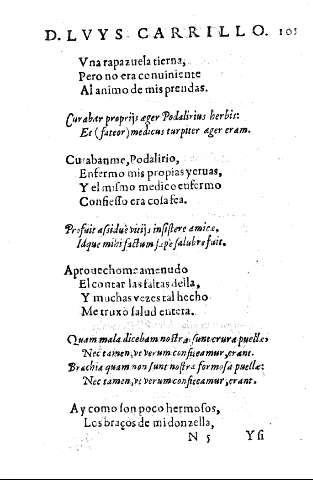 D. LVYS CARRILLO. 101
Vna rapazuela tierna,
Pero no era conuiniente
Al animo de mis prendas.
Curabar proprijs æger Podalirius herbis:
Et (fateor) medicus turpiter æger eram.
Curabanme, Podalirio,
Enfermo mis propias yeruas,
Y el mismo medico enfermo
Confiesso era cosa fea.
Profuit assiduè vitijs insistere amicæ,
Idque mihi factum sæpe salubre fuit.
Aprouechome amenudo
El contar las faltas della,
Y muchas vezes tal hecho
Me truxo salud entera.
Quam mala dicebam nostræ sunt crura puellæ,
Nec tamen, vt verum confiteamur, erant.
Brachia quam non sunt nostræ formosa puellæ:
Nec tamen, vt verum confiteamur, erant.
Ay como son poco hermosos,
Los braços de mi donzella.
N 5 Y si